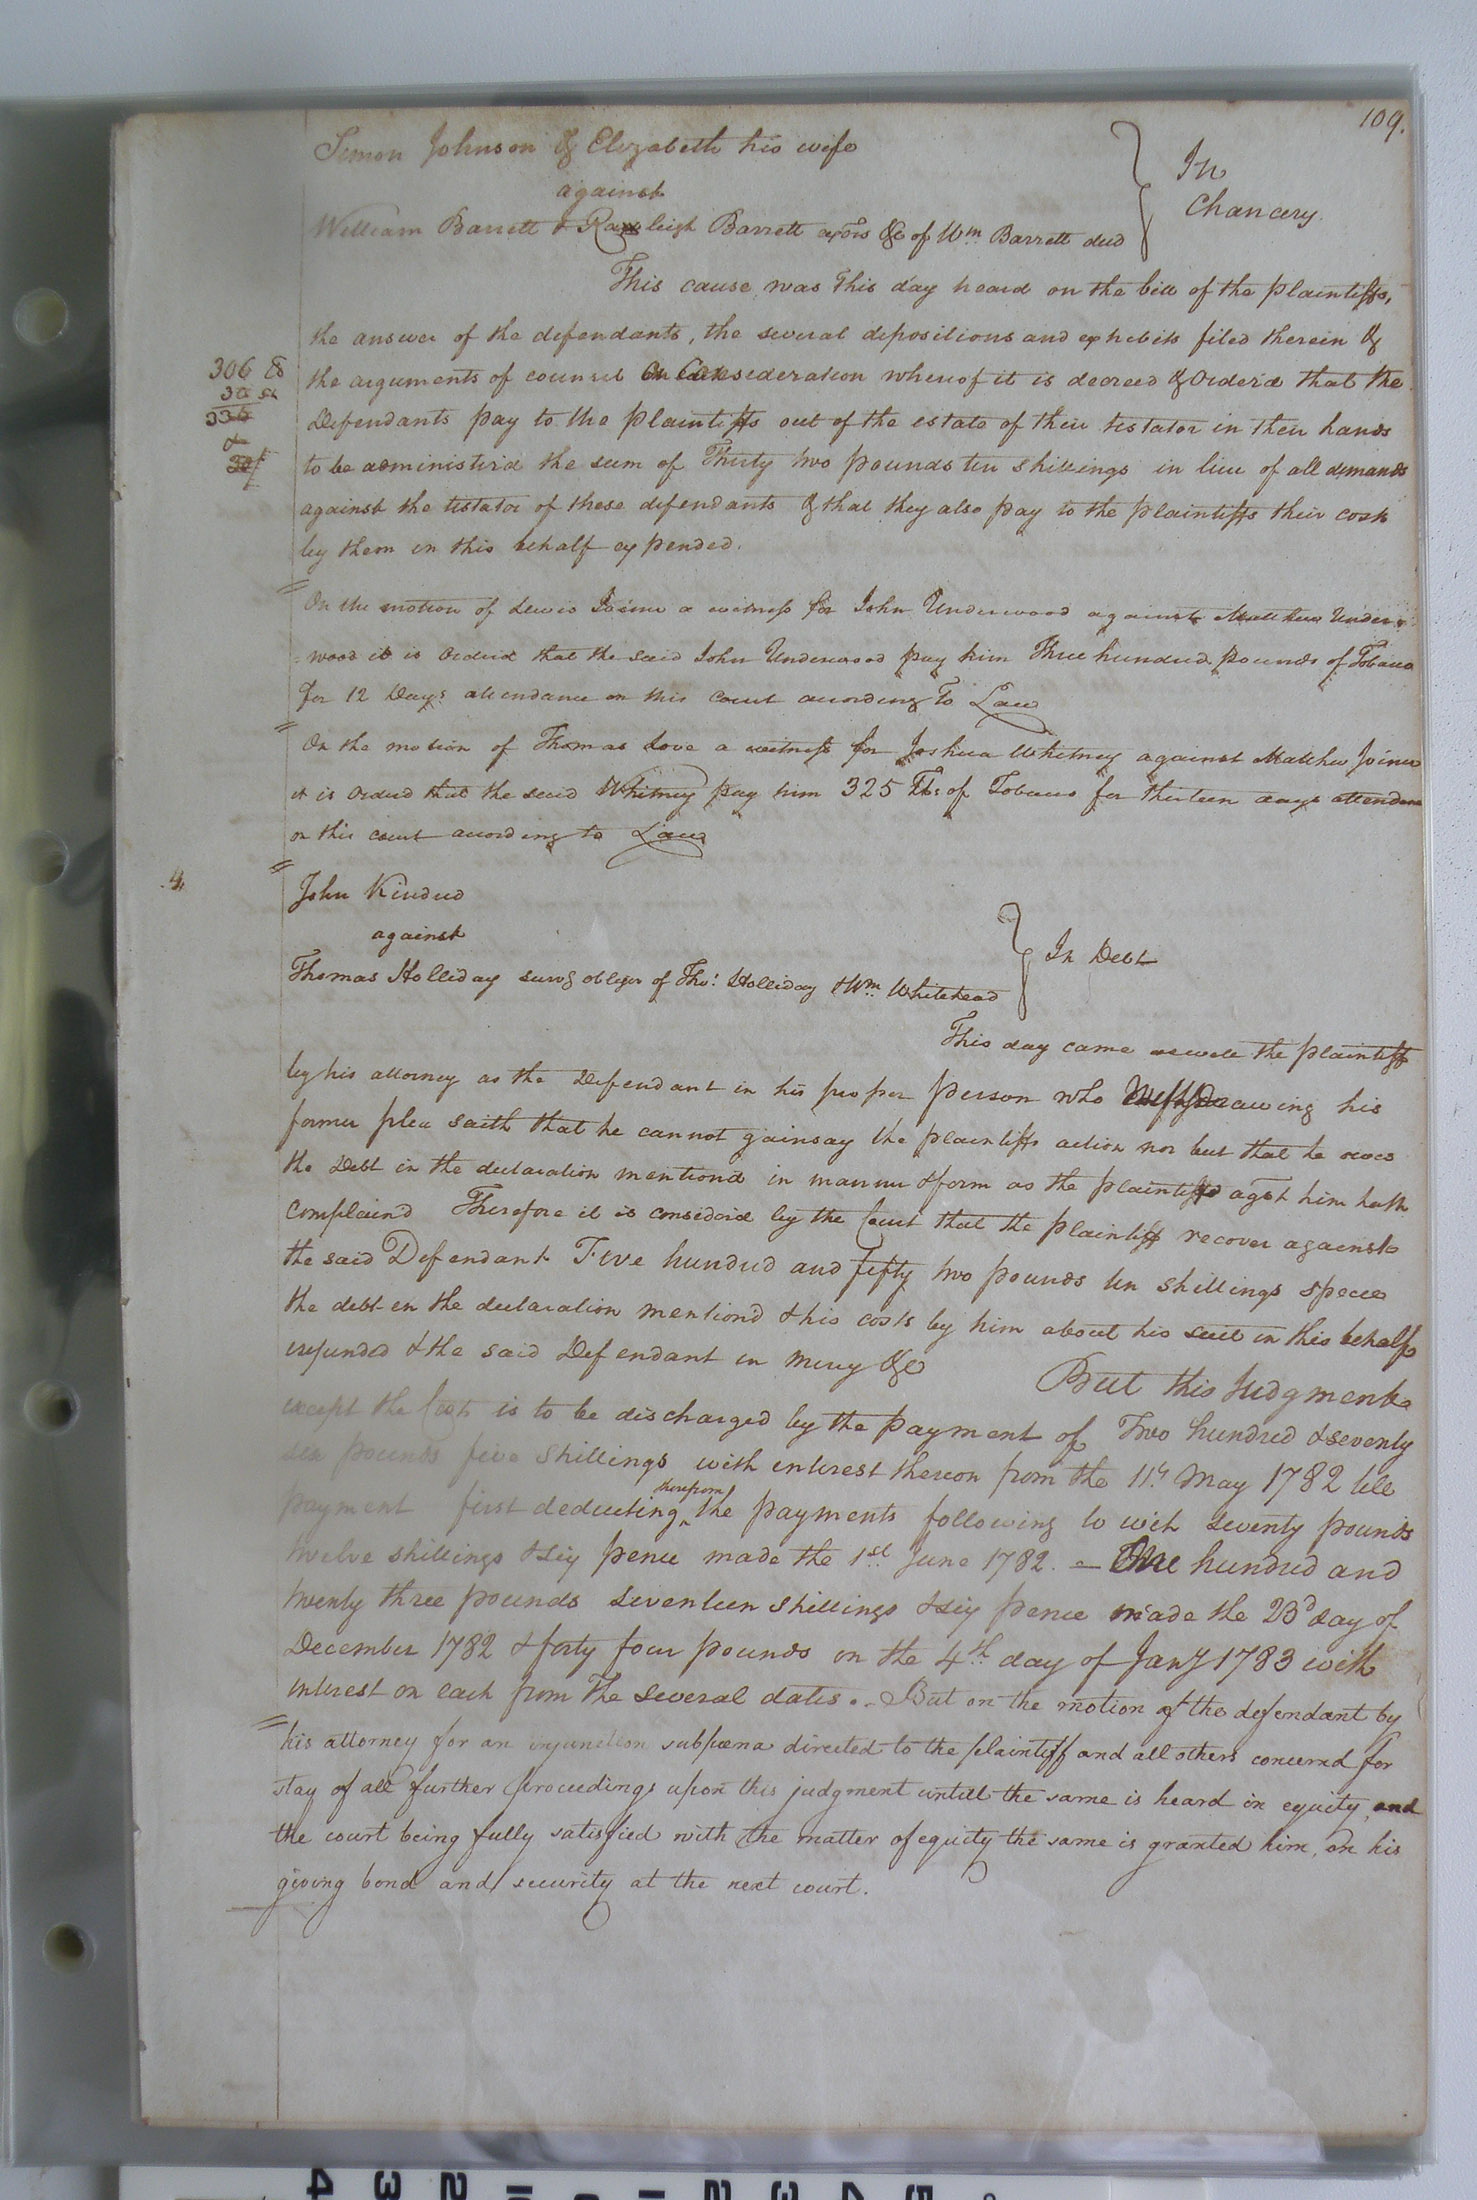 109.
Simon Johnson & Elizabeth his wife
against
William Barrett & Rawleigh Barrett exors &c of Wm Barrett decd
In
Chancery.
This cause was this day heard on the bill of the plaintiffs,
the answer of the defendants, the several depositions and exhibits filed therein &
the arguments of counsel On Consideration whereof it is decreed & Order'd that the
Defendants pay to the plaintiffs out of the estate of their testator in their hands
to be administer'd the sum of Thirty two pounds ten shillings in lieu of all demands
against the testator of these defendants & that they also pay to the plaintiffs their costs
by them in this behalf expended.
306
30
336
&
30/
On the motion of Lewis a witness for John Underwood against Matthew Under
= wood it is Orderd that the said John Underwood pay him Three hundred pounds of Tobacco
for 12 Days attendance on this court according to Law
On the motion of Thomas Love a witness for Joshua Whitney against Matthew Joiner
it is Orderd that the said Whitney pay him 325 lbs of Tobacco for thirteen days attendance
on this court according to Law
4
John Kindred
against
Thomas Holliday survg obligor of Tho: Holliday & Wm Whitehead
In Debt
This day came aswell the plaintiff
by his attorney as the Defendant in his proper person who Withdrawing his
former plea saith that he cannot gainsay the plaintiffs action nor but that he owes
the Debt in the declaration mentiond in manner & form as the plaintiff agst him hath
complaind Therefore it is considerd by the Court that the plaintiff recover against
the said Defendant Five hundred and fifty two pounds ten shillings specie
the debt in the declaration mentiond & his costs by him about his suit in this behalf
expended & the said Defendant in mercy &c But this Judgment
except the Costs is to be discharged by the payment of Two hundred & seventy
six pounds five shillings with interest thereon from the 11th May 1782 till
payment first deducting therefrom the payments following to wit Seventy pounds
twelve shillings & six pence made the 1st June 1782. — One hundred and
twenty three pounds seventeen shillings & six pence made the 23d day of
December 1782 & forty four pounds on the 4th day of Jany 1783 with
interest on each from the several dates. — But on the motion of the defendant by
his attorney for an injunction subpœna directed to the plaintiff and all others concernd for
stay of all further proceedings upon this judgment untill the same is heard in equity, and
the court being fully satisfied with the matter of equity the same is granted him, on his
giving bond and security at the next court.
4 3 2 1 0 1 2 3 4 5